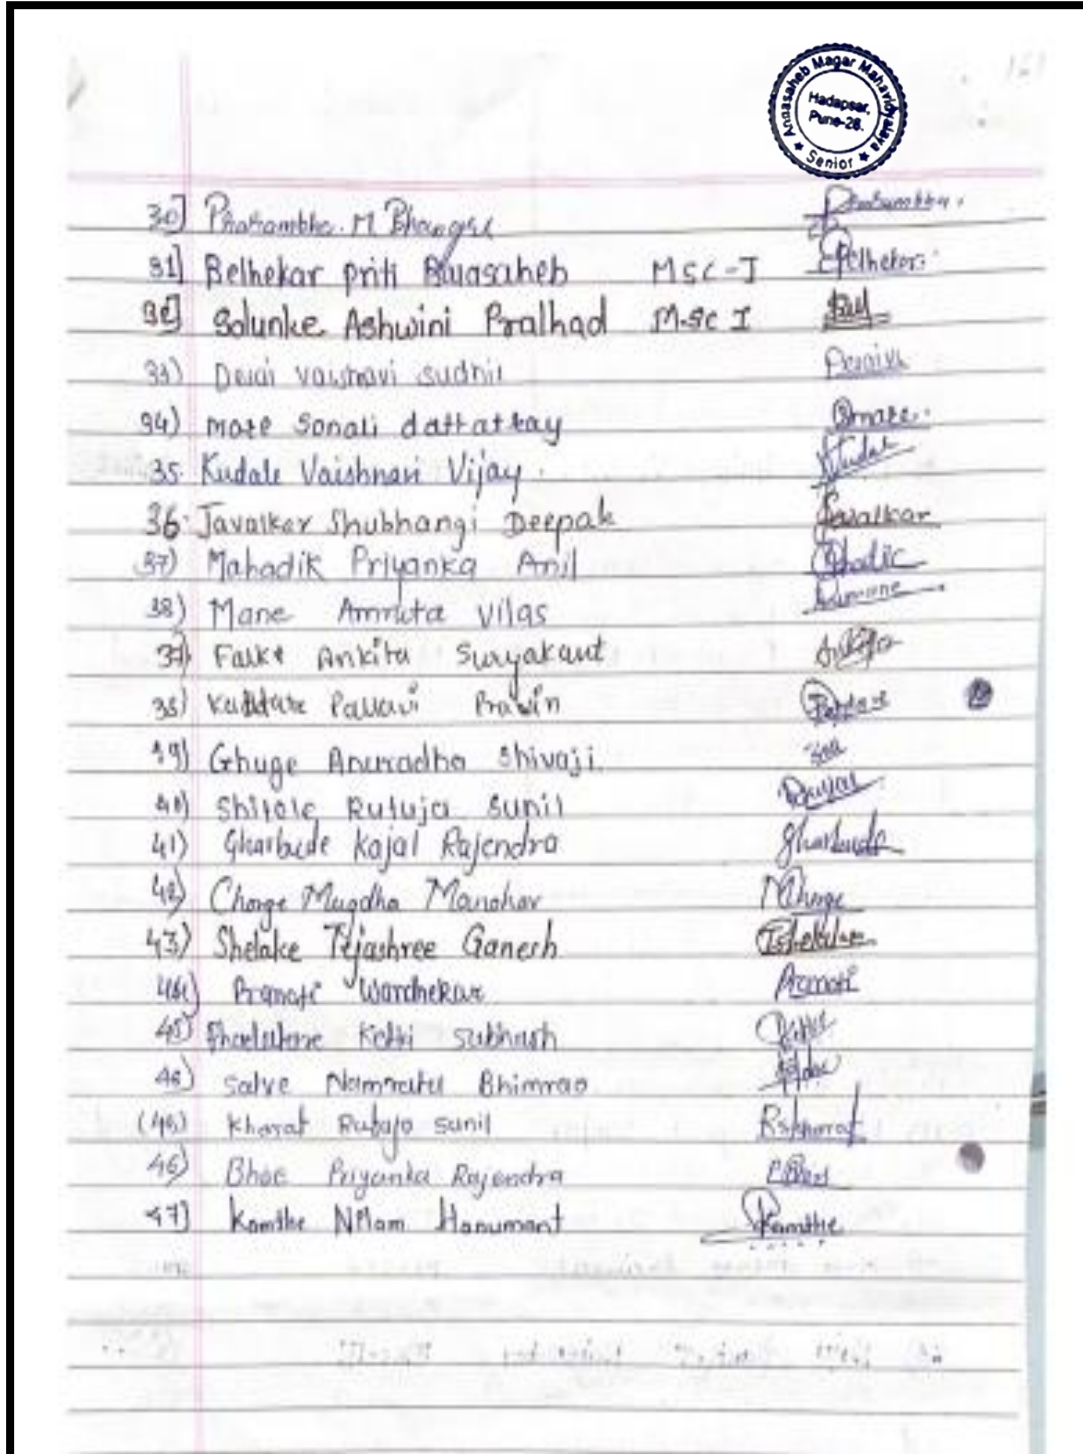 Annasaheb Magar Mahavidyalaya
Hadapsar,
Pune-28.
★ Senior ★
30] M Bhangre
31] Belhekar priti Buasaheb MSC-I Belhekar
32] Solunke Ashwini Pralhad M.sc I
33) Desai vaishnavi sudhir
34) more Sonali dattattay Smore
35. Kudale Vaishnavi Vijay. Kudale
36. Javalkar Shubhangi Deepak Javalkar
37) Mahadik Priyanka Anil
38) Mane Amruta Vilas
39) Falke Ankita Suryakant Ankita
38) Pallavi Pravin
39) Ghuge Anuradha Shivaji.
40) Shitole Rutuja Sunil
41) Gharbude Kajal Rajendra Gharbude
42) Chorge Mugdha Manohar MChorge
43) Shelake Tejashree Ganesh
44) Pranoti Wardhekar Pranoti
45) Ketki Subhash
46) Salve Namrata Bhimrao
(45) Kharat Rutuja Sunil RsKharat
46) Bhoe Priyanka Rajendra
47] Kamthe Nilam Hanumant Kamthe